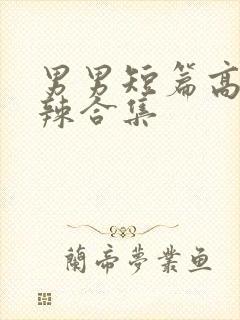 男男短篇高
辣合集
蘭帝夢業鱼